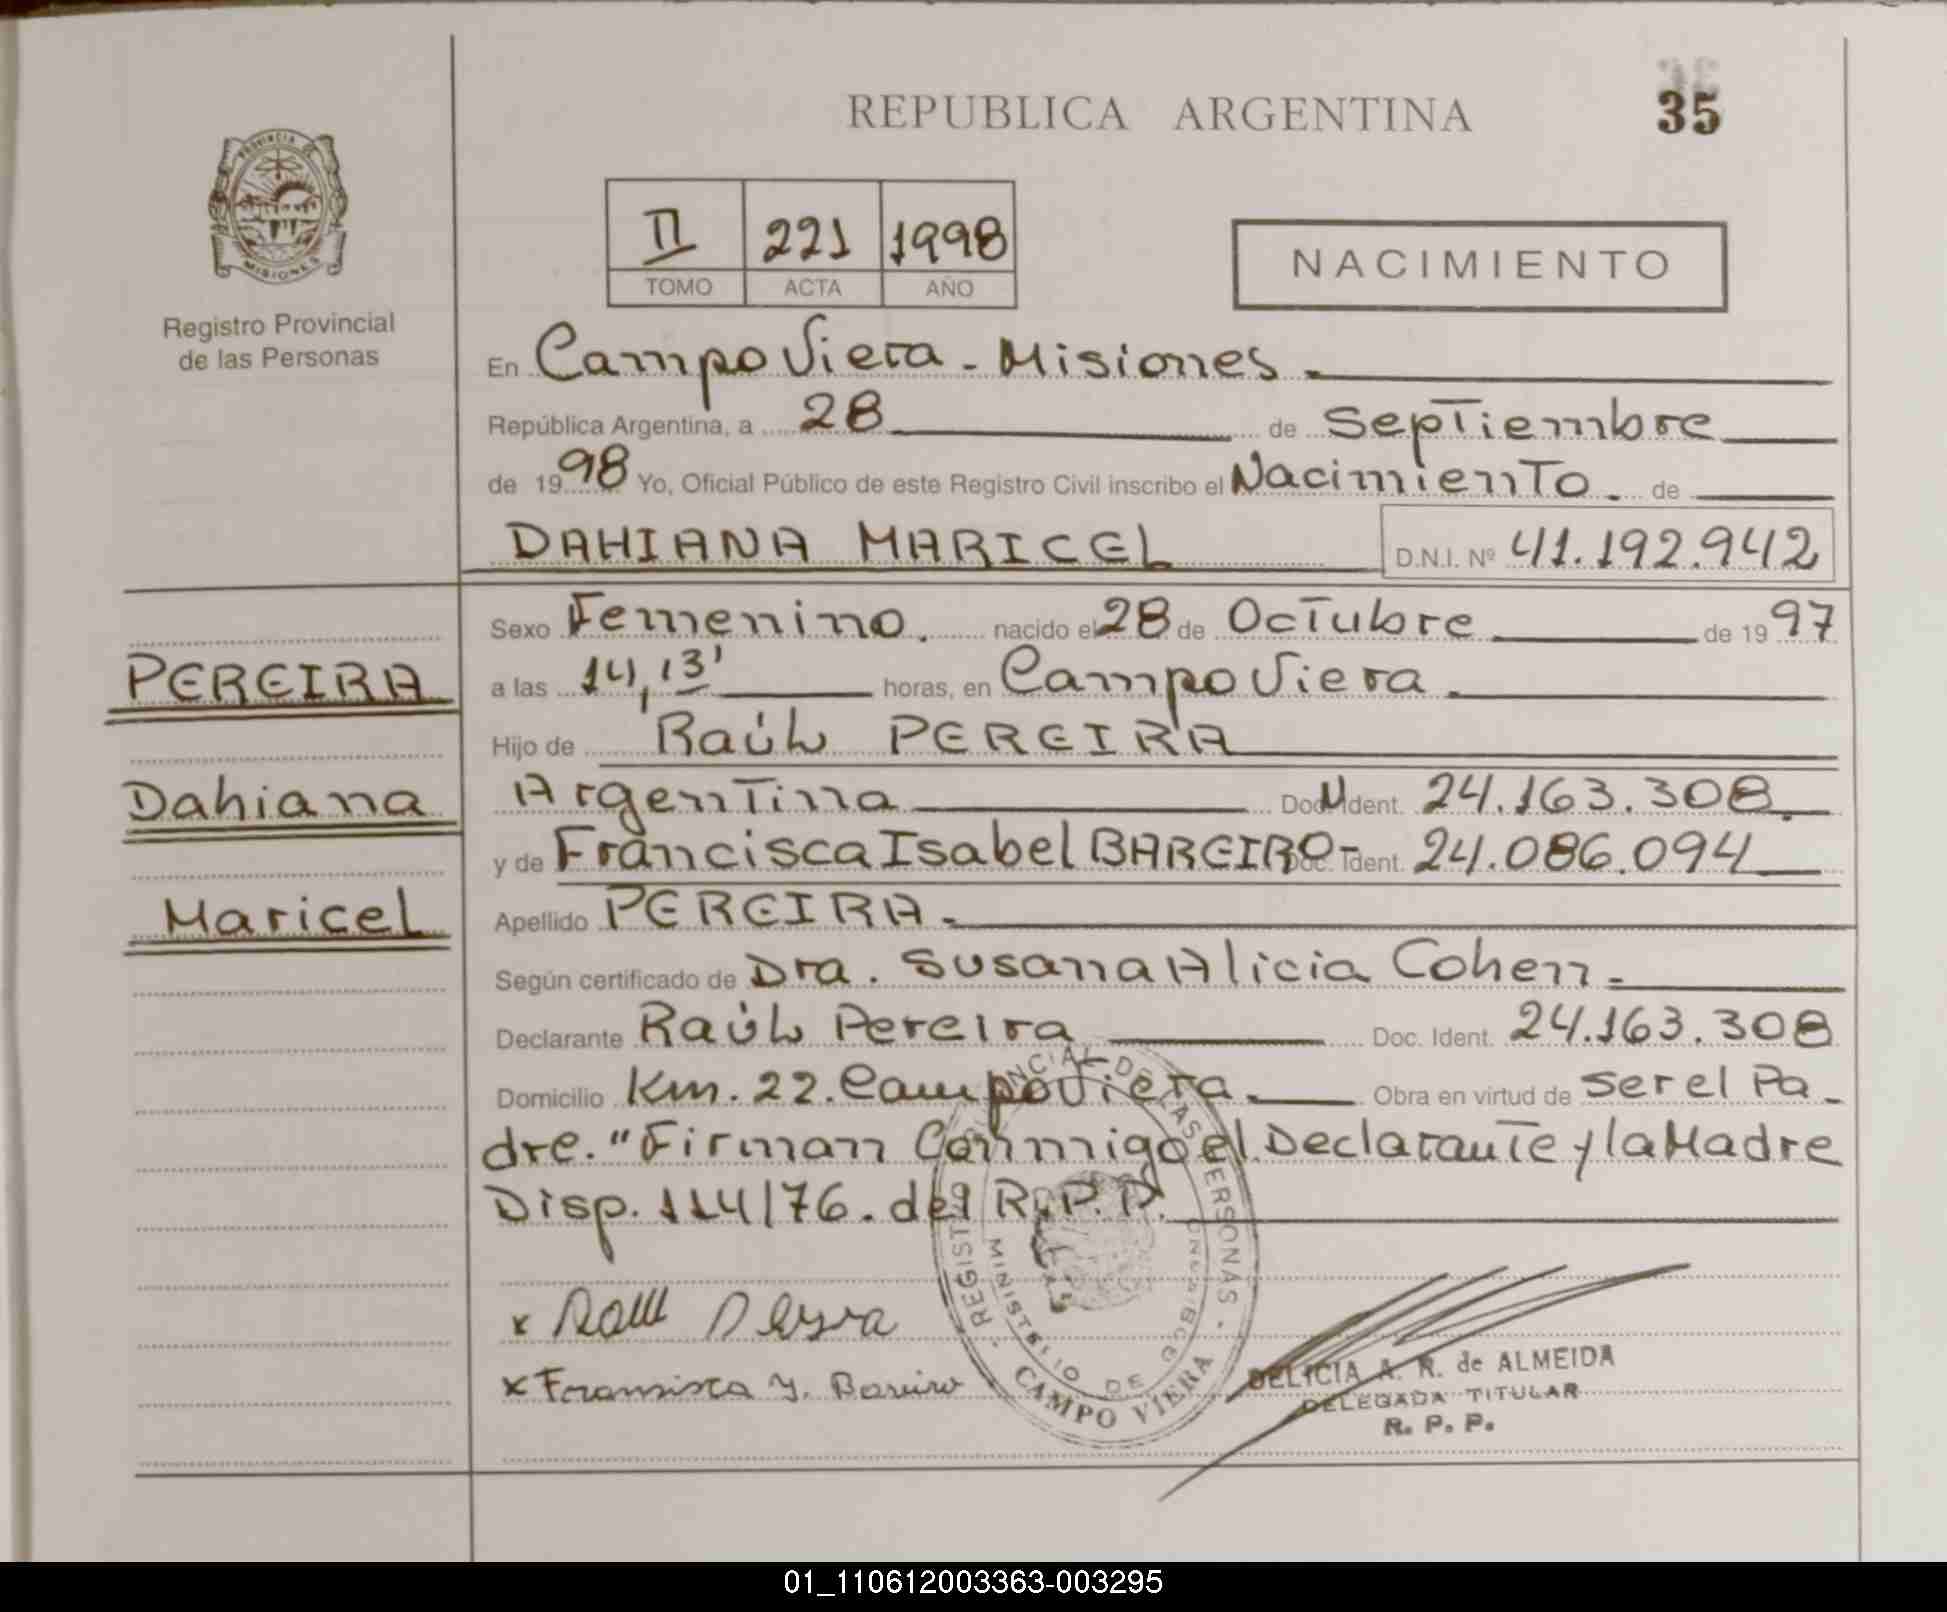 REPUBLICA ARGENTINA
35
PROVINCIA DE
MISIONES
Registro Provincial
de las Personas
II 221 1998
TOMO ACTA AÑO
NACIMIENTO
En Campo Viera - Misiones.
República Argentina, a 28 de Septiembre
de 1998 Yo, Oficial Público de este Registro Civil inscribo el Nacimiento. de
DAHIANA MARICEL D.N.I. Nº 41.192.942
Sexo Femenino. nacido el 28 de Octubre de 1997
PEREIRA
a las 14,13' horas, en Campo Viera.
Hijo de Raúl PEREIRA
Dahiana
Argentina Doc. Ident. 24.163.308.
y de Francisca Isabel BAREIRO- Doc. Ident. 24.086.094
Maricel
Apellido PEREIRA.
Según certificado de Dra. Susana Alicia Cohen.
Declarante Raúl Pereira Doc. Ident. 24.163.308
Domicilio Km. 22. Campo Viera. Obra en virtud de ser el Pa-
dre. "Firman Conmigo el Declarante y la Madre
Disp. 114/76. del R.P.P.
x Raul
x Fransisca Y. Bareiro
CAMPO VIERA
DELICIA A. R. de ALMEIDA
DELEGADA TITULAR
R. P. P.
01_110612003363-003295